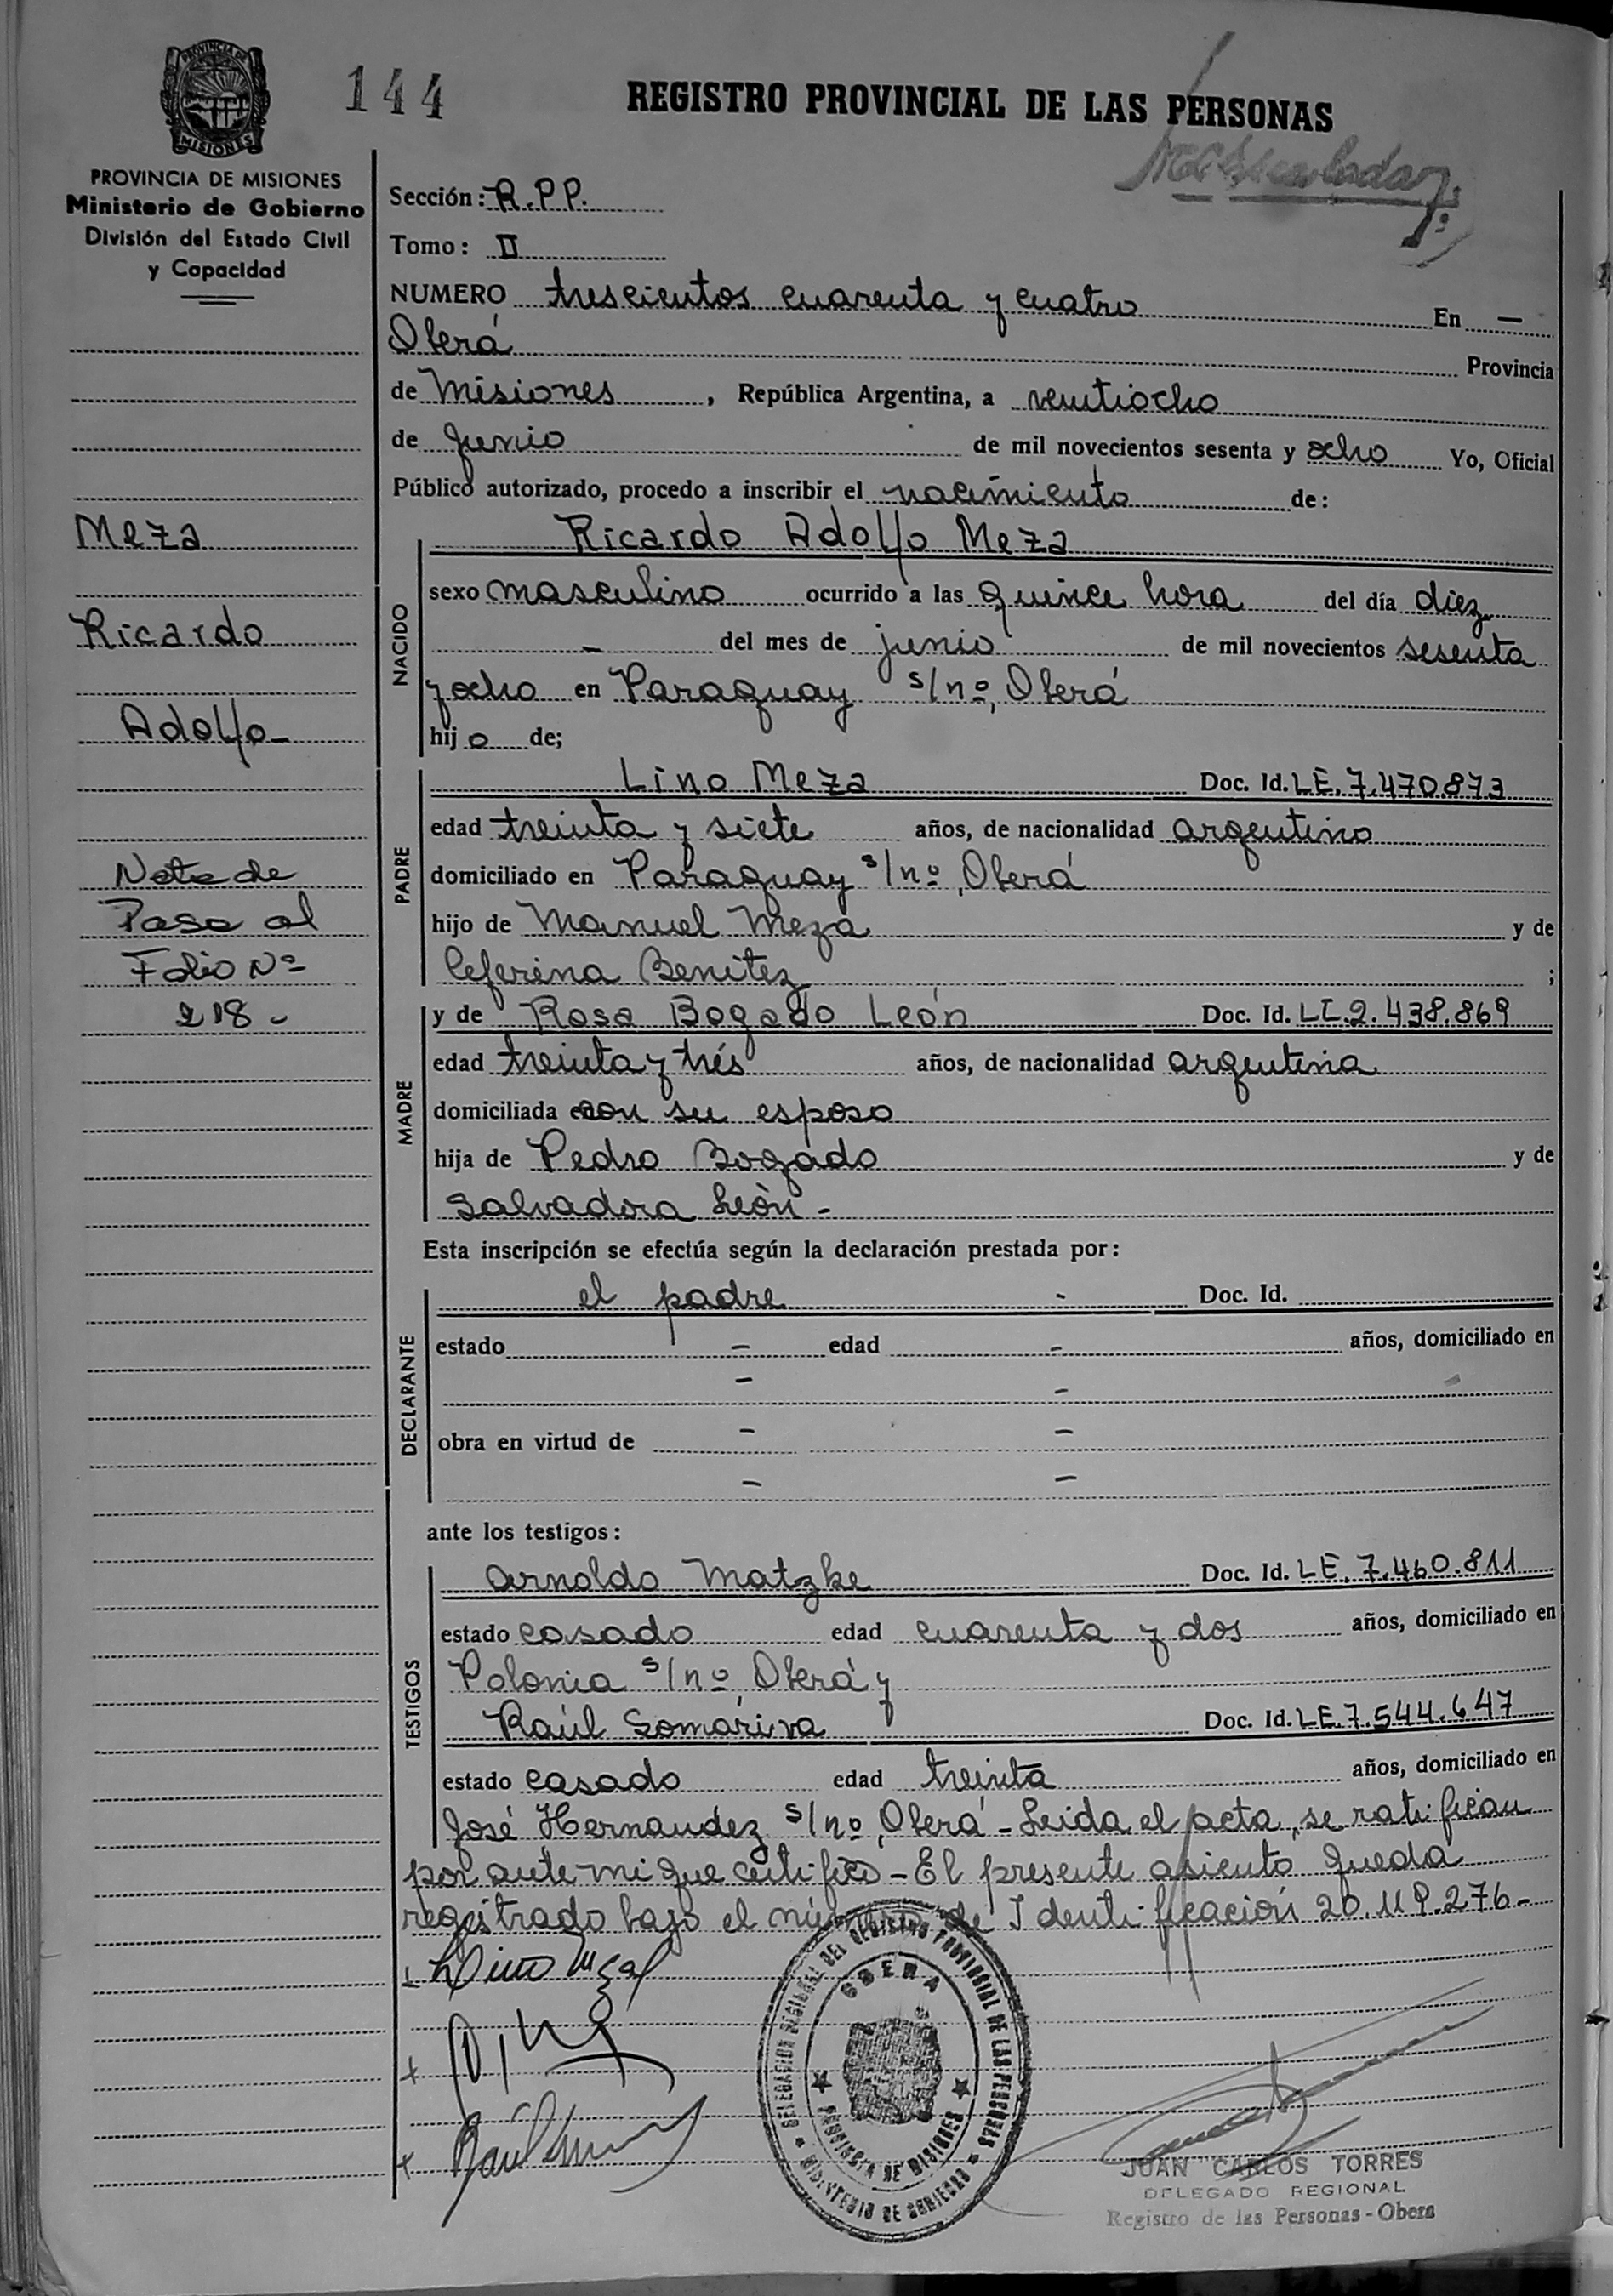 144
REGISTRO PROVINCIAL DE LAS PERSONAS
PROVINCIA DE
MISIONES
PROVINCIA DE MISIONES
Ministerio de Gobierno
División del Estado Civil
y Capacidad
Sección: R.P.P.
Tomo: II
NUMERO trescientos cuarenta y cuatro En —
Oberá Provincia
de Misiones, República Argentina, a veintiocho
de Junio de mil novecientos sesenta y ocho Yo, Oficial
Público autorizado, procedo a inscribir el nacimiento de:
Meza
Ricardo
Adolfo-
Nota de
Pasa al
Folio Nº
218-
NACIDO
Ricardo Adolfo Meza
sexo masculino ocurrido a las quince hora del día diez
— del mes de junio de mil novecientos sesenta
y ocho en Paraguay s/nº, Oberá
hijo de;
PADRE
Lino Meza Doc. Id. LE. 7.470.873
edad treinta y siete años, de nacionalidad argentino
domiciliado en Paraguay s/nº, Oberá
hijo de Manuel Meza y de
Ceferina Benitez ;
MADRE
y de Rosa Bogado León Doc. Id. LC 2.438.869
edad treinta y trés años, de nacionalidad argentina
domiciliada con su esposo
hija de Pedro Bogado y de
Salvadora León -
Esta inscripción se efectúa según la declaración prestada por:
DECLARANTE
el padre - Doc. Id.
estado — edad — años, domiciliado en
— —
obra en virtud de — —
— —
ante los testigos:
TESTIGOS
Arnoldo Matzke Doc. Id. LE. 7.460.811
estado casado edad cuarenta y dos años, domiciliado en
Polonia s/nº, Oberá y
Raúl Somariva Doc. Id. LE. 7.544.647
estado casado edad treinta años, domiciliado en
José Hernandez s/nº, Oberá - Leida el acta, se ratifican
por ante mi que certifico - El presente asiento queda
registrado bajo el número de Identificación 20.119.276-
DELEGACION REGIONAL DEL REGISTRO PROVINCIAL DE LAS PERSONAS
OBERA
PROVINCIA DE MISIONES
MINISTERIO DE GOBIERNO
JUAN CARLOS TORRES
DELEGADO REGIONAL
Registro de las Personas - Obera